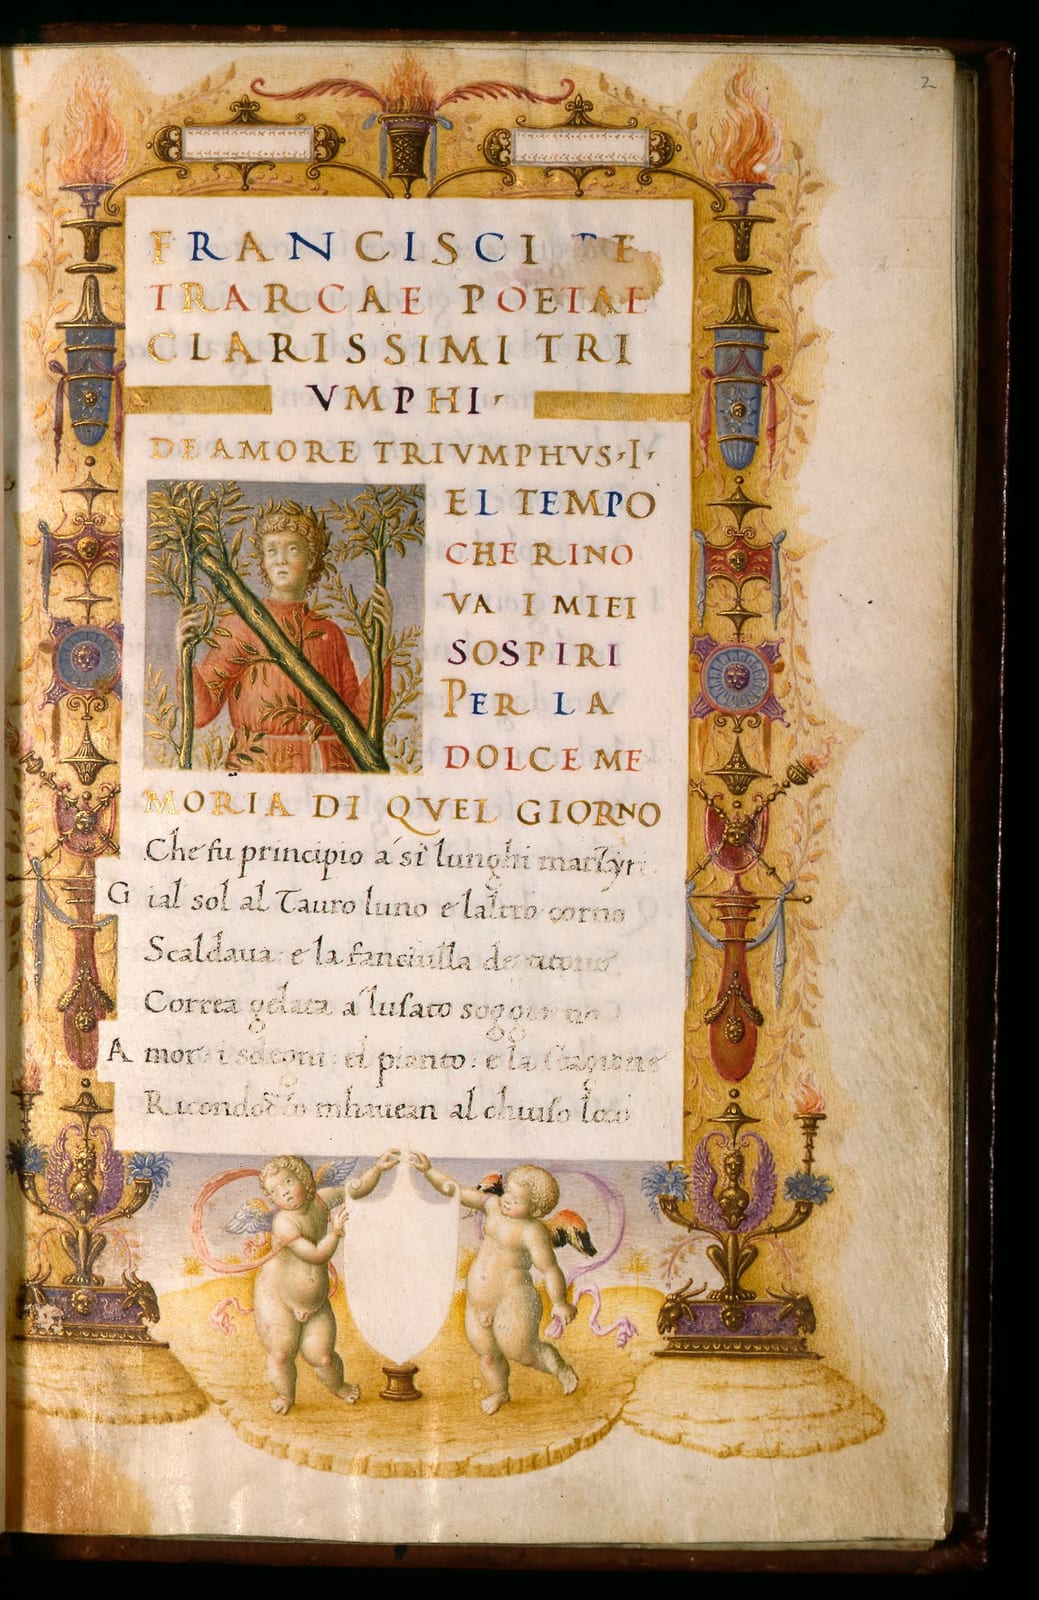 2
FRANCISCI PE
TRARCAE POETAE
CLARISSIMI TRI
VMPHI·
DE AMORE TRIVMPHVS·I·
NEL TEMPO
CHE RINO
VA I MIEI
SOSPIRI
PER LA
DOLCE ME
MORIA DI QVEL GIORNO
Che fu principio a si lunghi martyri
Gial sol al Tauro luno e laltro corno
Scaldaua: e la fanciulla de titone
Correa gelata a lusato soggiorno
Amor: i sdegni: el pianto: e la stagione
Ricondotto mhauean al chiuso loco